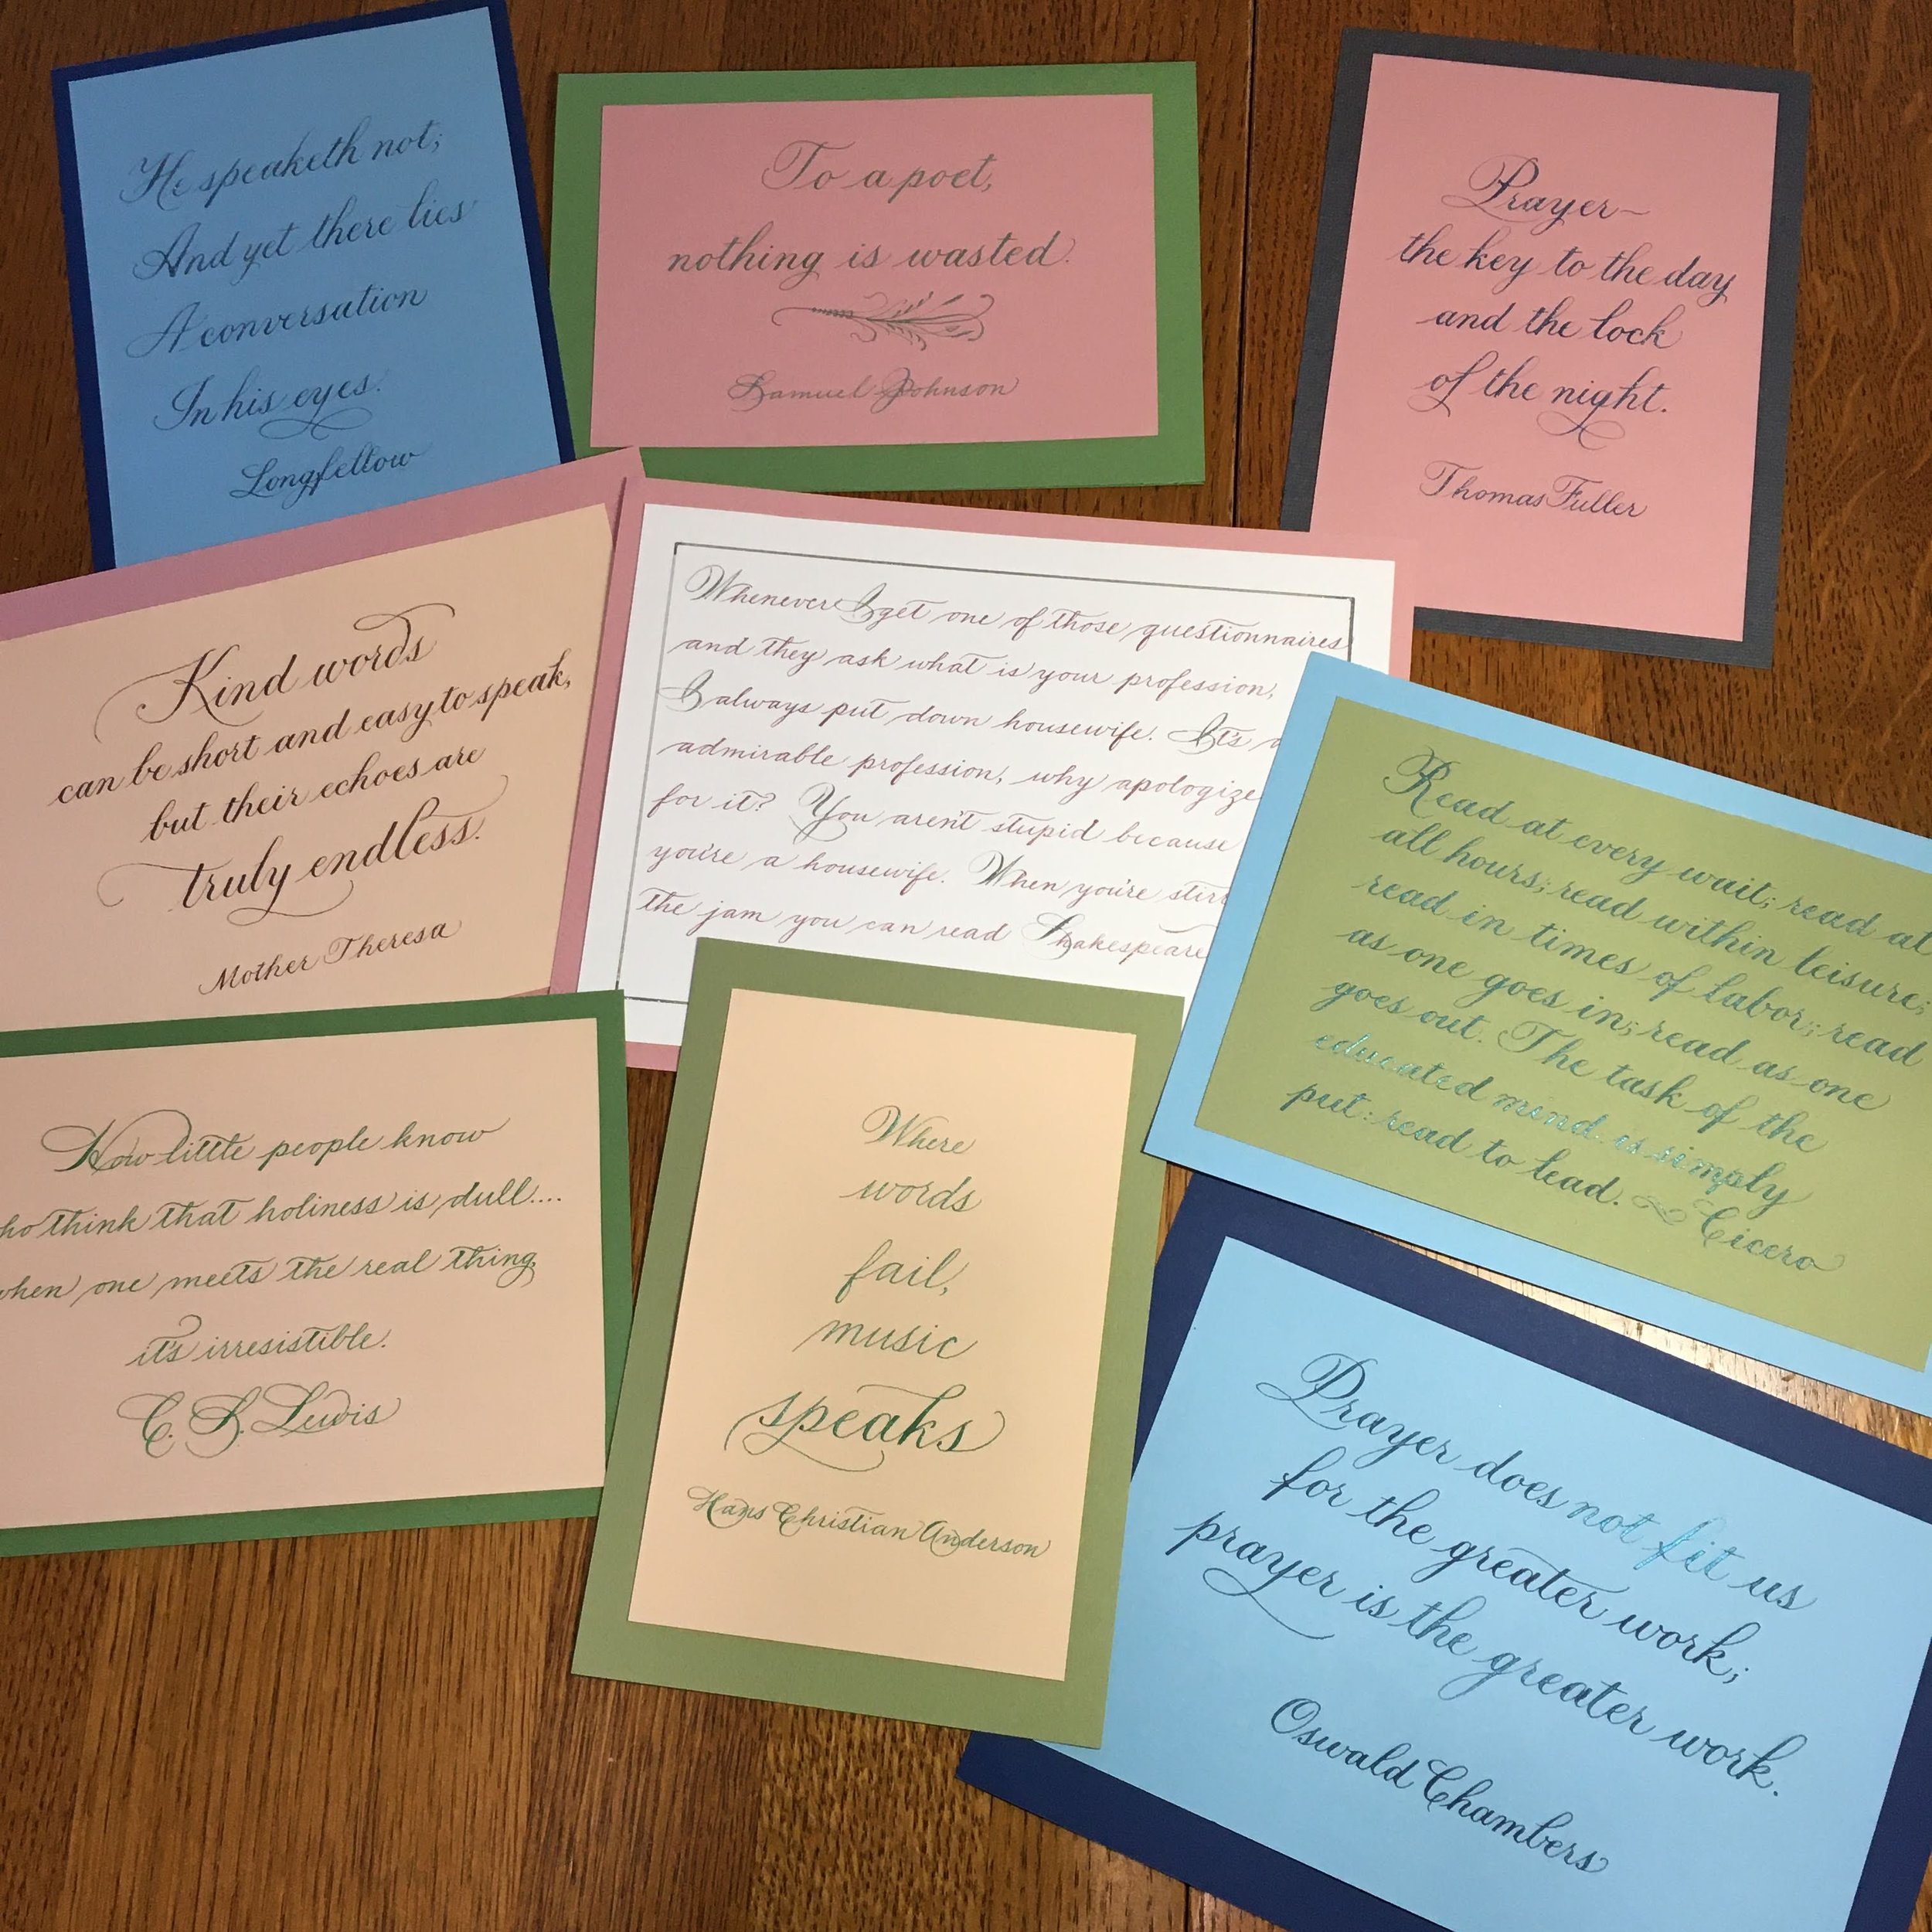 He speaketh not;
And yet there lies
A conversation
In his eyes.
Longfellow
To a poet,
nothing is wasted.
Samuel Johnson
Prayer~
the key to the day
and the lock
of the night.
Thomas Fuller
Kind words
can be short and easy to speak,
but their echoes are
truly endless.
Mother Theresa
Whenever I get one of those questionnaires
and they ask what is your profession,
I always put down housewife. It's
admirable profession, why apologize
for it? You aren't stupid because
you're a housewife. When you're
the jam you can read Shakespeare
Read at every wait; read at
all hours; read within leisure;
read in times of labor; read
as one goes in; read as one
goes out. The task of the
educated mind is simply
put: read to lead. Cicero
How little people know
think that holiness is dull....
when one meets the real thing,
it's irresistible.
C. S. Lewis
Where
words
fail,
music
speaks
Hans Christian Anderson
Prayer does not fit us
for the greater work;
prayer is the greater work.
Oswald Chambers